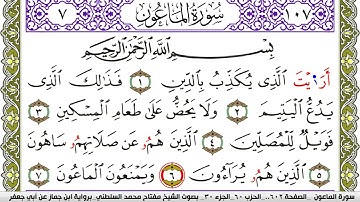 ٧ سُورَةُ المَاعُونِ ١٠٧
بِسْمِ اللَّهِ الرَّحْمَٰنِ الرَّحِيمِ
أَرَٰيْتَ الَّذِى يُكَذِّبُ بِالدِّينِ ١ فَذَٰلِكَ الَّذِى
يَدُعُّ الْيَتِيمَ ٢ وَلَا يَحُضُّ عَلَىٰ طَعَامِ الْمِسْكِينِ ٣
فَوَيْلٌ لِلْمُصَلِّينَ ٤ الَّذِينَ هُمُۥ عَن صَلَاتِهِمُۥ سَاهُونَ
٥ الَّذِينَ هُمُۥ يُرَآءُونَ ٦ وَيَمْنَعُونَ الْمَاعُونَ ٧
سورة الماعون .. الصفحة ٦٠٢ .. الحزب ٦٠ .. الجزء ٣٠ .. بصوت الشيخ مفتاح محمد السلطني .. برواية ابن جماز عن أبي جعفر